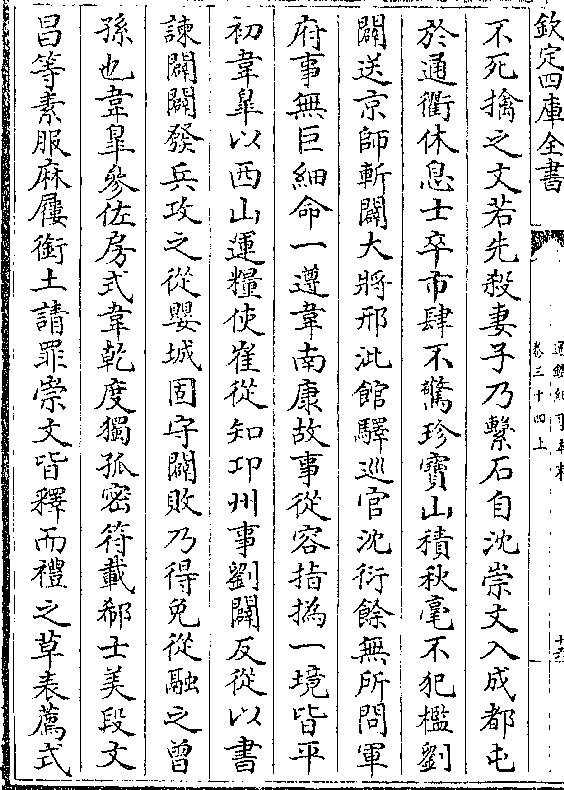 欽定四庫全書
卷三十四上
不死擒之文若先殺妻子乃繫石自沈崇文入成都屯
於通衢休息士卒市肆不驚珍寶山積秋毫不犯檻劉
闢送京師斬闢大將邢泚館驛巡官沈衍餘無所問軍
府事無巨細命一遵韋南康故事從容指撝一境皆平
初韋臯以西山運糧使崔從知邛州事劉闢反從以書
諫闢闢發兵攻之從嬰城固守闢敗乃得免從融之曾
孫也韋臯參佐房式韋乾度獨孤密符載郗士美段文
昌等素服麻屨銜土請罪崇文皆釋而禮之草表薦式